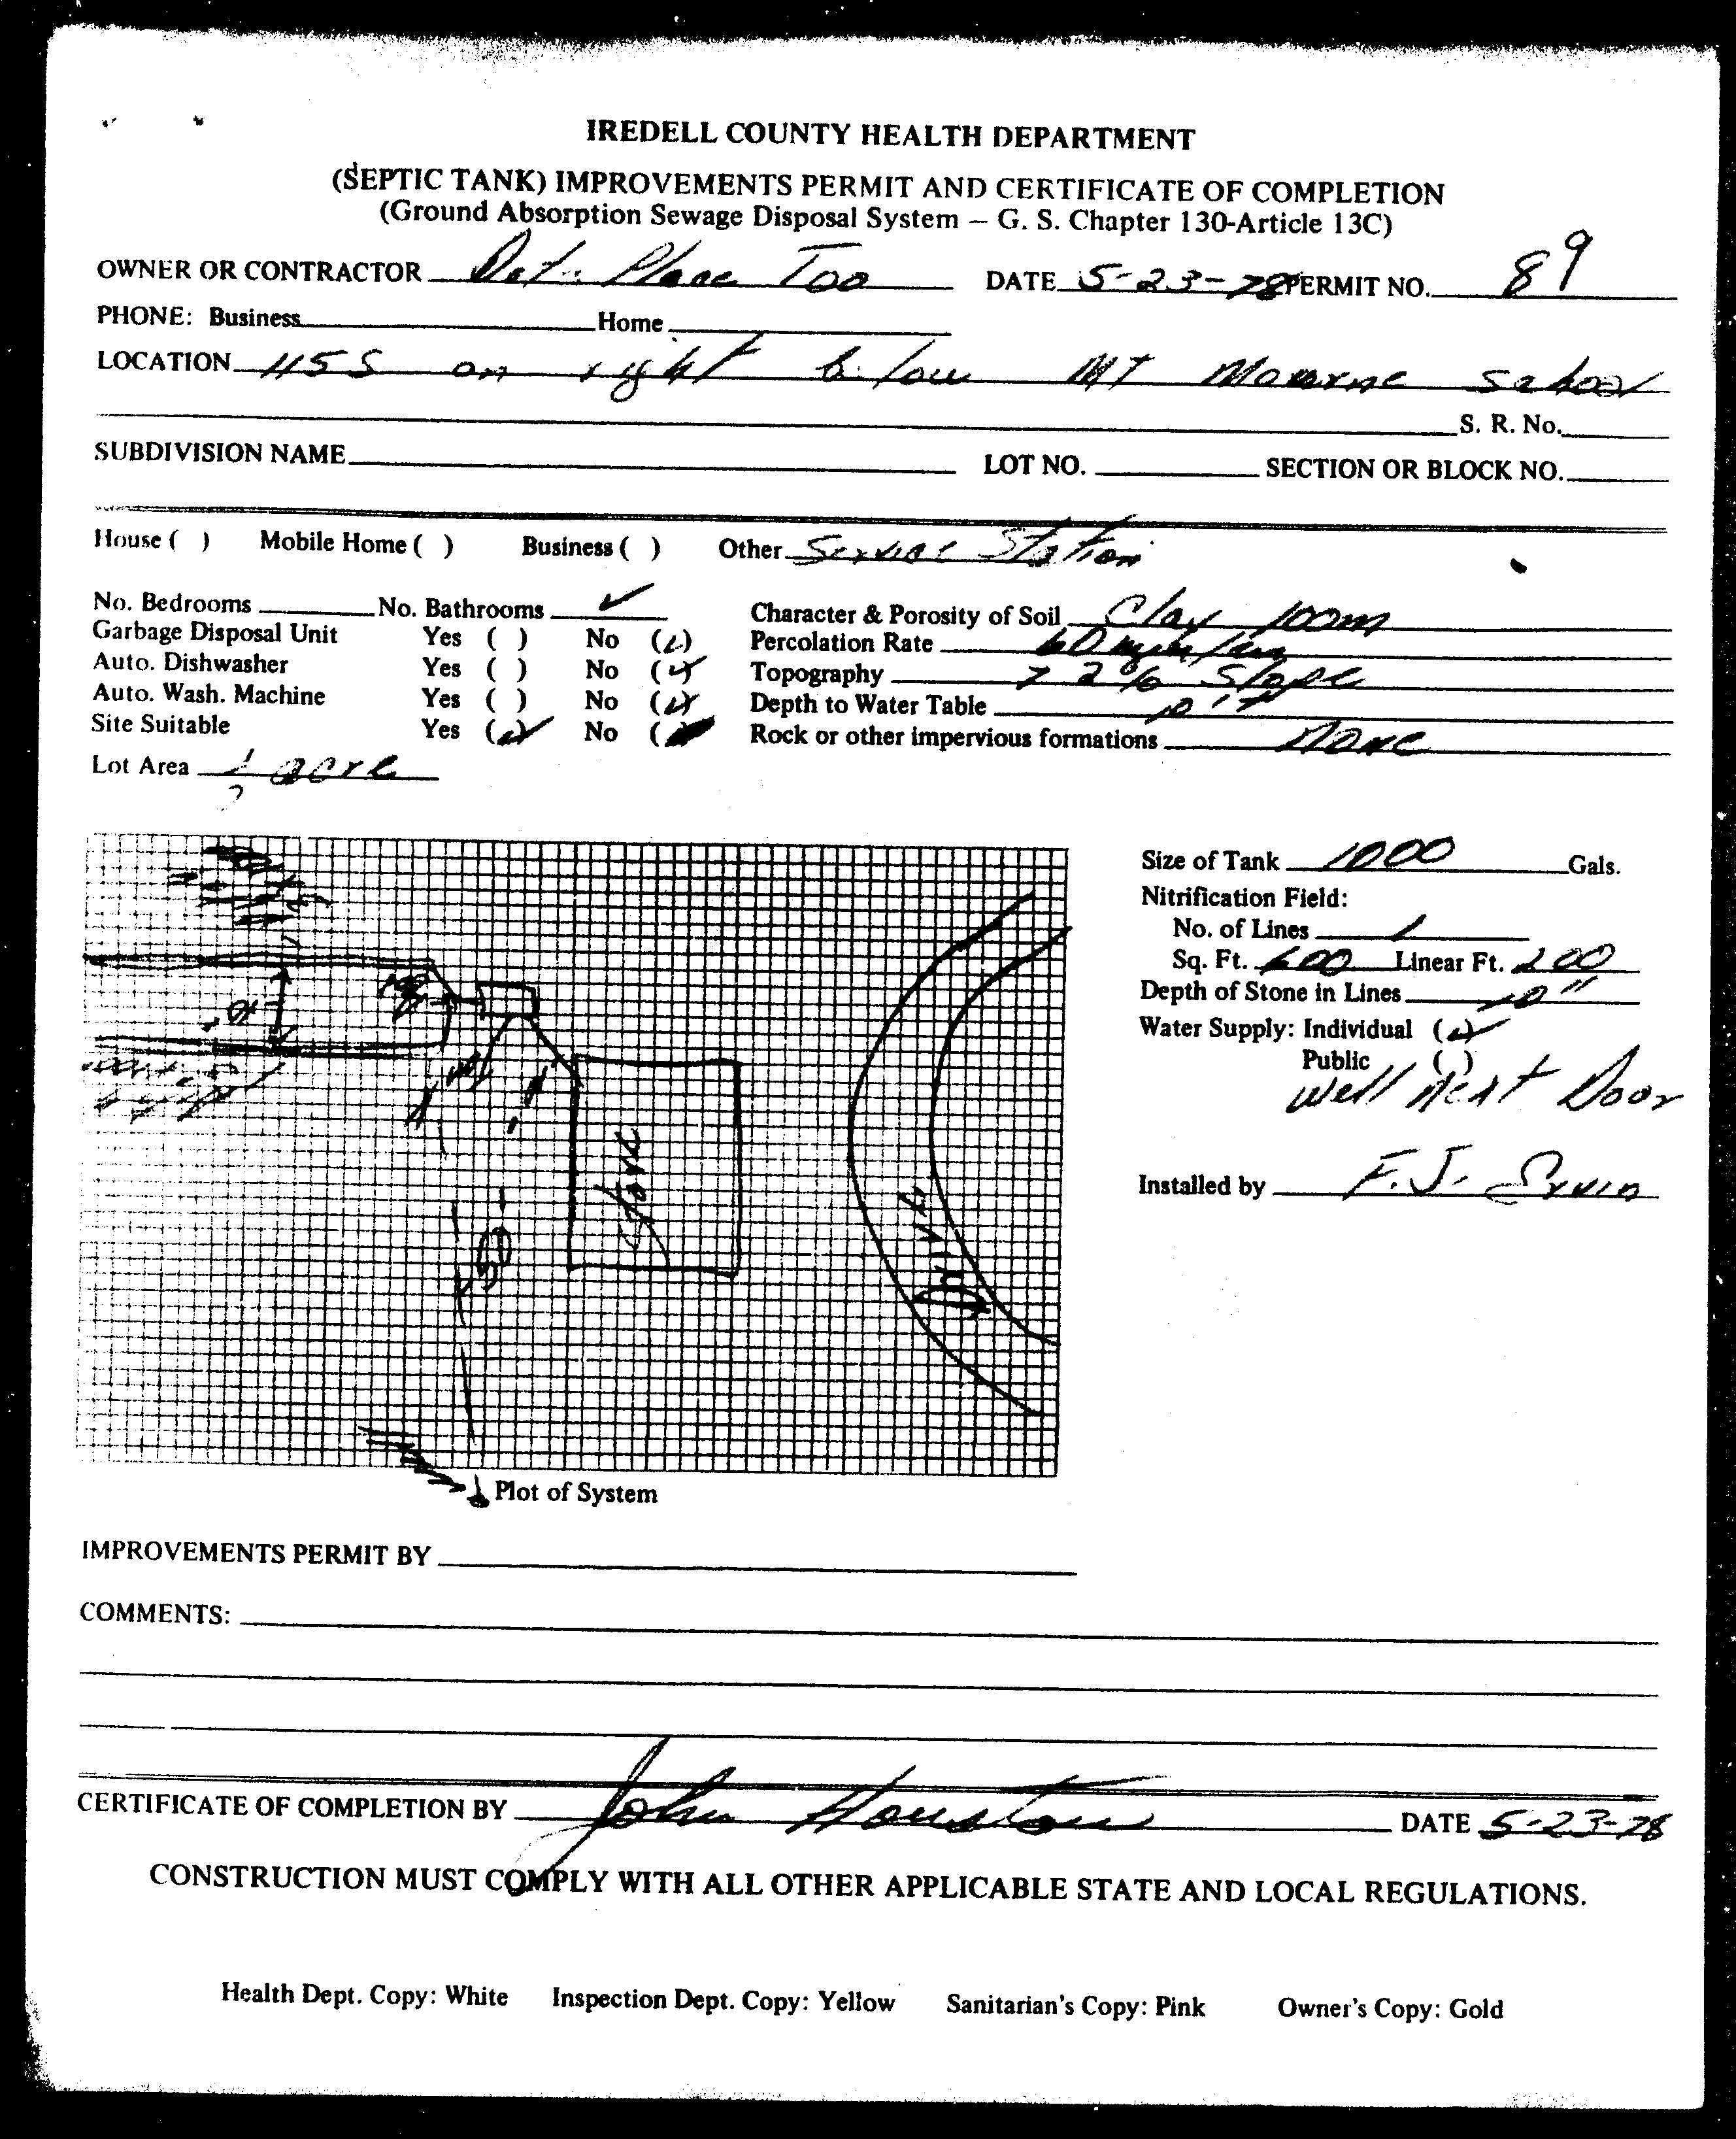 IREDELL COUNTY HEALTH DEPARTMENT
(SEPTIC TANK) IMPROVEMENTS PERMIT AND CERTIFICATE OF COMPLETION
(Ground Absorption Sewage Disposal System – G. S. Chapter 130-Article 13C)
OWNER OR CONTRACTOR Place Too DATE 5-23-78 PERMIT NO. 89
PHONE: Business Home
LOCATION 115 S on right below MT Mourne School
S. R. No.
SUBDIVISION NAME LOT NO. SECTION OR BLOCK NO.
House ( ) Mobile Home ( ) Business ( ) Other Service Station
No. Bedrooms No. Bathrooms ✓ Character & Porosity of Soil Clay loam
Garbage Disposal Unit Yes ( ) No (✓) Percolation Rate 60 min/in
Auto. Dishwasher Yes ( ) No (✓) Topography 2% Slope
Auto. Wash. Machine Yes ( ) No (✓) Depth to Water Table
Site Suitable Yes (✓) No ( ) Rock or other impervious formations None
Lot Area 1 acre
2
Size of Tank 1000 Gals.
Nitrification Field:
No. of Lines 1
Sq. Ft. 600 Linear Ft. 200
Depth of Stone in Lines
Water Supply: Individual (✓)
Public ( )
Well Next Door
Installed by F. J. Ervin
Store
50
Drive
Plot of System
IMPROVEMENTS PERMIT BY
COMMENTS:
CERTIFICATE OF COMPLETION BY John Houston DATE 5-23-78
CONSTRUCTION MUST COMPLY WITH ALL OTHER APPLICABLE STATE AND LOCAL REGULATIONS.
Health Dept. Copy: White Inspection Dept. Copy: Yellow Sanitarian's Copy: Pink Owner's Copy: Gold